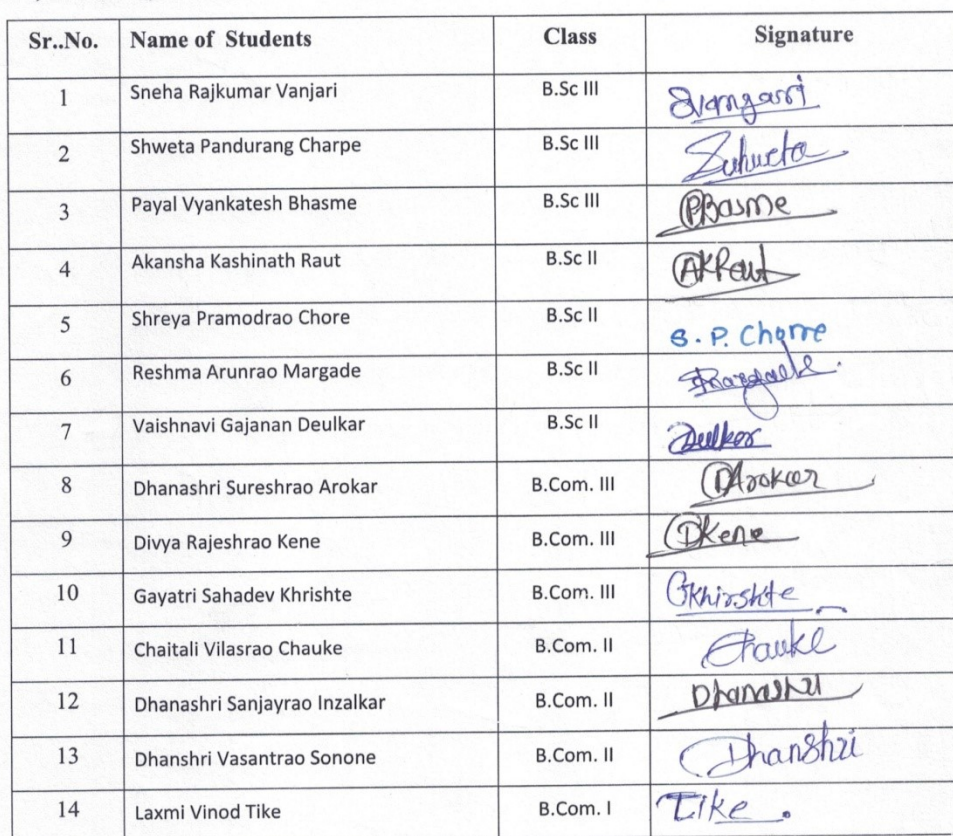 Sr..No. Name of Students Class Signature
1 Sneha Rajkumar Vanjari B.Sc III
2 Shweta Pandurang Charpe B.Sc III
3 Payal Vyankatesh Bhasme B.Sc III PBasme
4 Akansha Kashinath Raut B.Sc II AKRaut
5 Shreya Pramodrao Chore B.Sc II S. P. Chorre
6 Reshma Arunrao Margade B.Sc II
7 Vaishnavi Gajanan Deulkar B.Sc II Dulkar
8 Dhanashri Sureshrao Arokar B.Com. III DArokar
9 Divya Rajeshrao Kene B.Com. III DKene
10 Gayatri Sahadev Khrishte B.Com. III GKhirshte
11 Chaitali Vilasrao Chauke B.Com. II Chauke
12 Dhanashri Sanjayrao Inzalkar B.Com. II Dhanashri
13 Dhanshri Vasantrao Sonone B.Com. II Dhanshri
14 Laxmi Vinod Tike B.Com. I Tike.